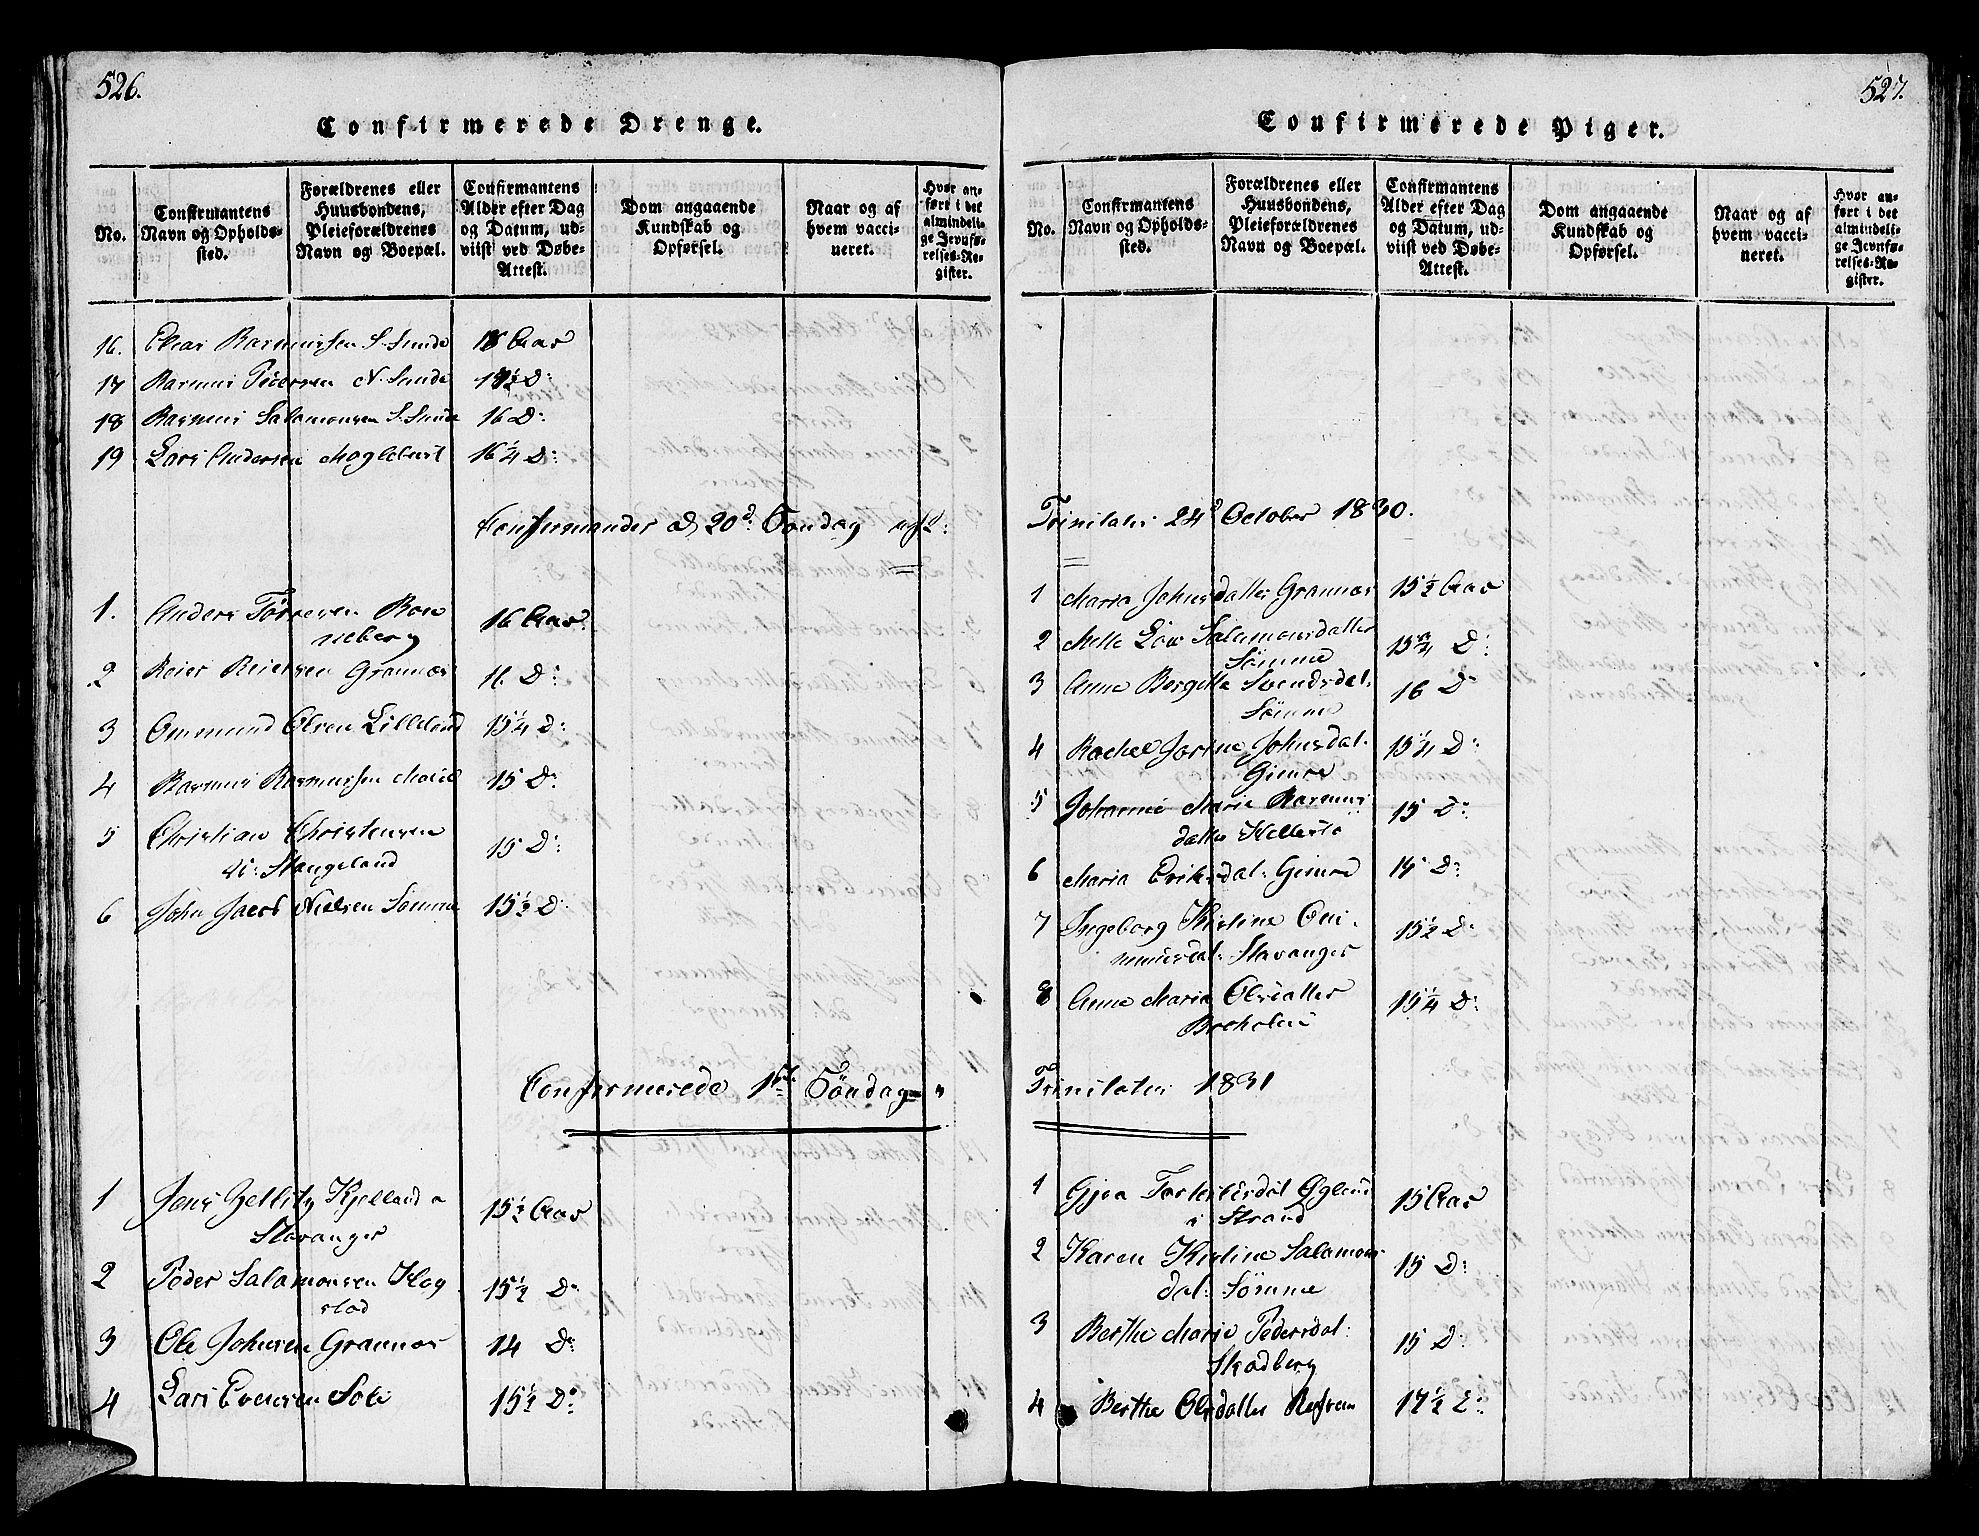 526.
Confirmerede Drenge.
No.
Confirmantens Navn og Opholds-sted.
Forældrenes eller Huusbondens, Pleieforældrenes Navn og Boepæl.
Confirmantens Alder efter Dag og Datum, ud-viist ved Døbe-Attest.
Dom angaaende Kundskab og Opførsel.
Naar og af hvem vacci-neret.
Hvor an-ført i det almindeli-ge Jevnfø-relses-Re-gister.
16. Rasmussen S. Sunde 16 Aar
17 Rasmus Pedersen N. Sunde D:
18 Rasmus Salamonsen S. Sunde 16 D:
19 Lars Andersen 16 1/4 D:
Confirmander d, 20d: Søndag
1. Anders Tørresen Ron
neberg 16 Aar
2 Reier Reiersen Grannes 16 D:
3 Ommund Olsen Lilleland 15 1/4 D:
4 Rasmus Rasmussen 15 D:
5 Christian Christensen
Stangeland 15 D:
6 John Jacob Nielsen Sømme 15 1/2 D:
Confirmerede 1ste Søndag
1 Jens Zetlitz Kjelland a
Stavanger 15 1/2 Aar
2 Peder Salamonsen Hog
stad 15 1/2 D:
3 Ole Johnsen Grannes 14 D:
4 Lars Evensen Sole 15 1/2 D:
527.
Confirmerede Piger.
No.
Confirmantens Navn og Opholds-sted.
Forældrenes eller Huusbondens, Pleieforældrenes Navn og Boepæl.
Confirmantens Alder efter Dag og Datum, ud-viist ved Døbe-Attest.
Dom angaaende Kundskab og Opførsel.
Naar og af hvem vacci-neret.
Hvor an-ført i det almindeli-ge Jevnfø-relses-Re-gister.
Trinitatis 24d October 1830.
1 Maria Johnsdatter Grannes 15 1/2 Aar
2 Salamonsdatter
Sømme D:
3 Anne Bergitta Svendsdat.
Sømme 16 D:
4 Rachel Johnsdat.
Gimre 15 1/4 D:
5 Johanne Marie Rasmus
datter 15 D:
6 Maria Eriksdat: Gimre D:
7 Ingeborg Kirstine
Stavanger 15 1/2 D:
8 Anne Maria Olsdatter
15 1/4 D:
Trinitatis 1831
1 Gjøa
i Strand 15 Aar
2 Karen Kirstine Salamons
dat: Sømme 15 D:
3 Berthe Marie Pedersdat:
Skadberg 15 D:
4 Berthe Olsdatter 17 1/2 D: